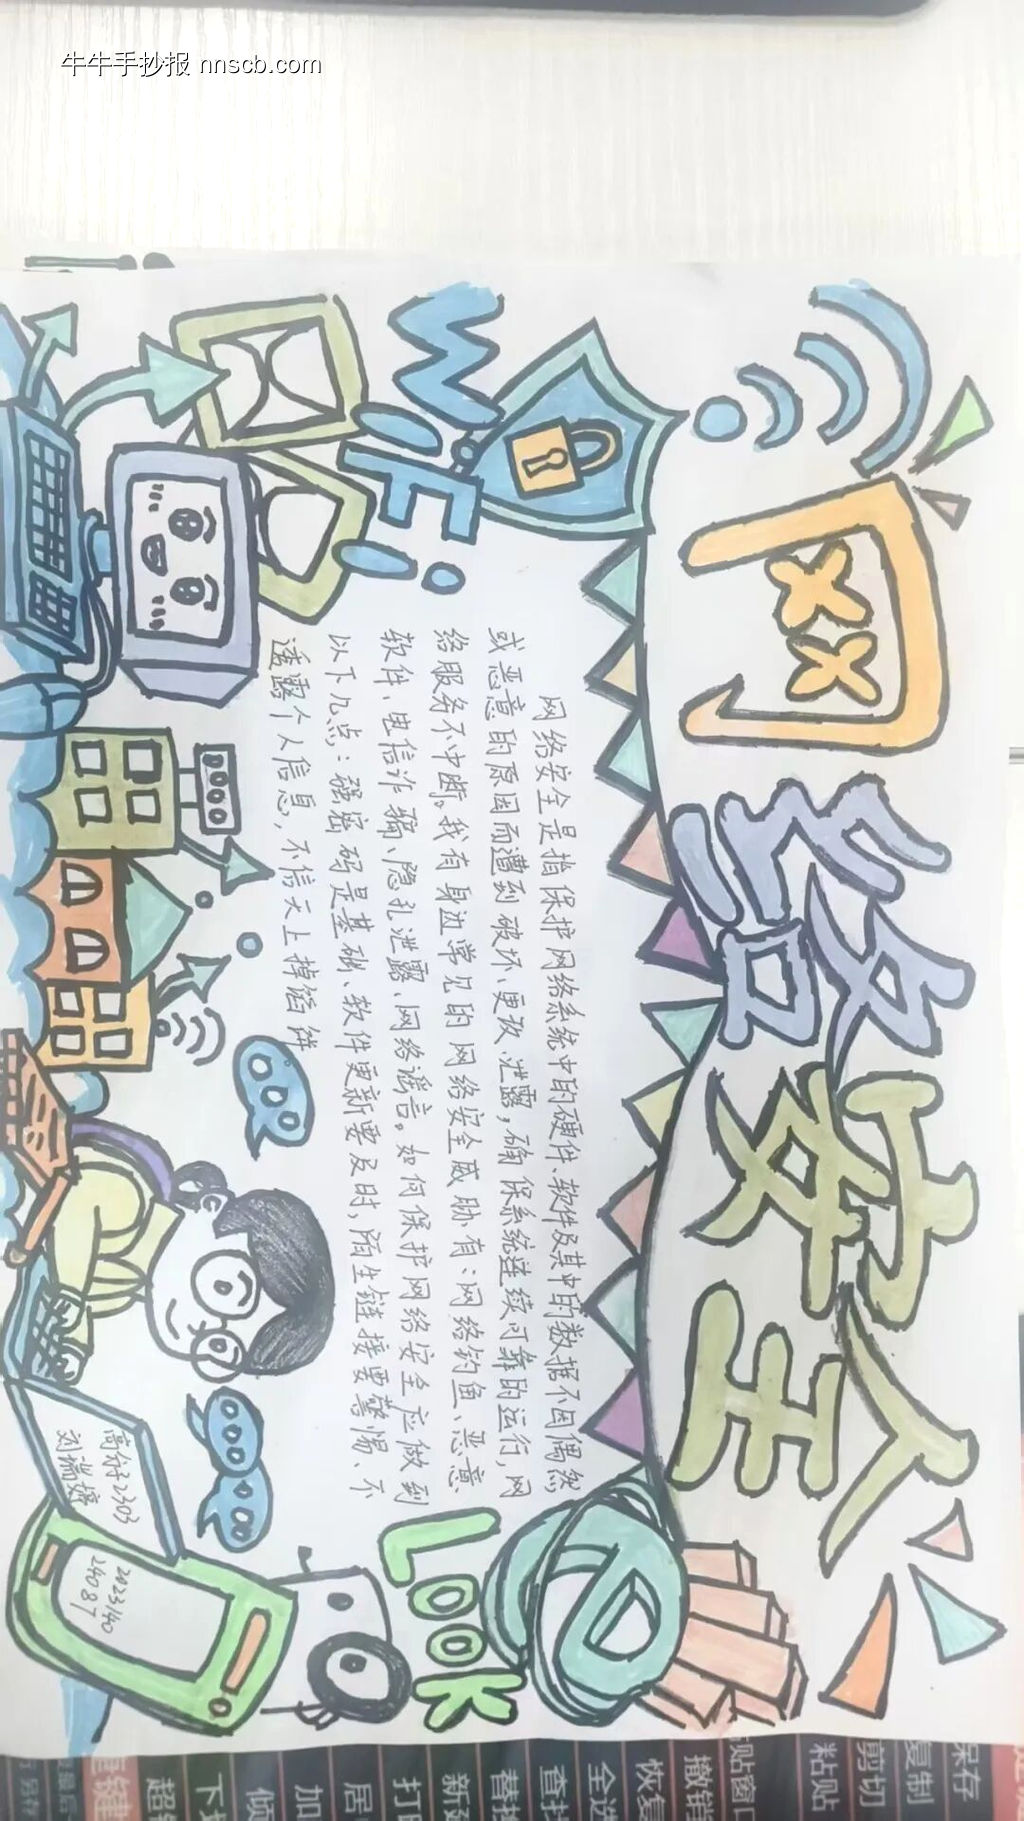 牛牛手抄报 nnscb.com
网络安全
WiFi
网络安全是指保护网络系统中的硬件、软件及其中的数据不因偶然
或恶意的原因而遭到破坏、更改、泄露，确保系统连续可靠的运行，网
络服务不中断。我有身边常见的网络安全威胁有：网络钓鱼、恶意
软件、电信诈骗、隐私泄露、网络谣言。如何保护网络安全应做到
以下几点：强密码是基础、软件更新要及时，陌生链接要警惕、不
透露个人信息，不信天上掉馅饼
LOOK
e
刘端婷
2023140
保存
复制
剪切
粘贴
贴窗口
撤销
恢复
全选
查找
替换
打印